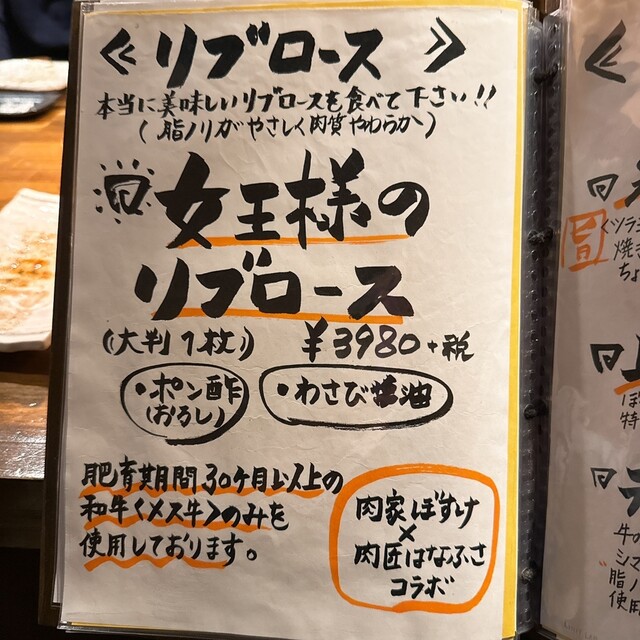 ≪ リブロース ≫
本当に美味しいリブロースを食べて下さい!!
(脂ノリがやさしく肉質やわらか)
女王様の
リブロース
(大判1枚) ¥3980+税
・ポン酢
(おろし)
・わさび醤油
肥育期間30ヶ月以上の
和牛〈メス牛〉のみを
使用しております。
肉家ぽすけ
×
肉匠はなふさ
コラボ
≪
焼き
ちょ
特
牛の
シマ
"脂ノ
使用